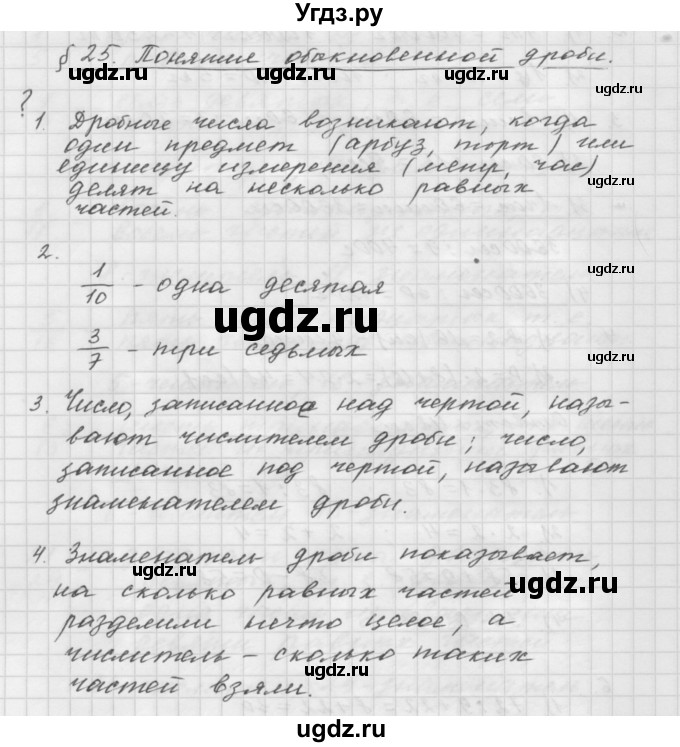 Угдз.ру
§ 25. Понятие обыкновенной дроби.
ugdz.ru ugdz.ru
ugdz.ru
?
1. Дробные числа возникают, когда
один предмет (арбуз, торт) или
единицу измерения (метр, час)
ugdz.ru
делят на несколько равных
частей.
ugdz.ru
2.
1/10 - одна десятая
ugdz.ru
3/7 - три седьмых
ugdz.ru
3. Число, записанное над чертой, назы-
ugdz.ru
вают числителем дроби; число,
записанное под чертой, называют
ugdz.ru
знаменателем дроби.
4. Знаменатель дроби показывает,
ugdz.ru
на сколько равных частей
ugdz.ru
разделили нечто целое, а
ugdz.ru
числитель - сколько таких
частей взяли.
ugdz.ru
ugdz.ru ugdz.ru